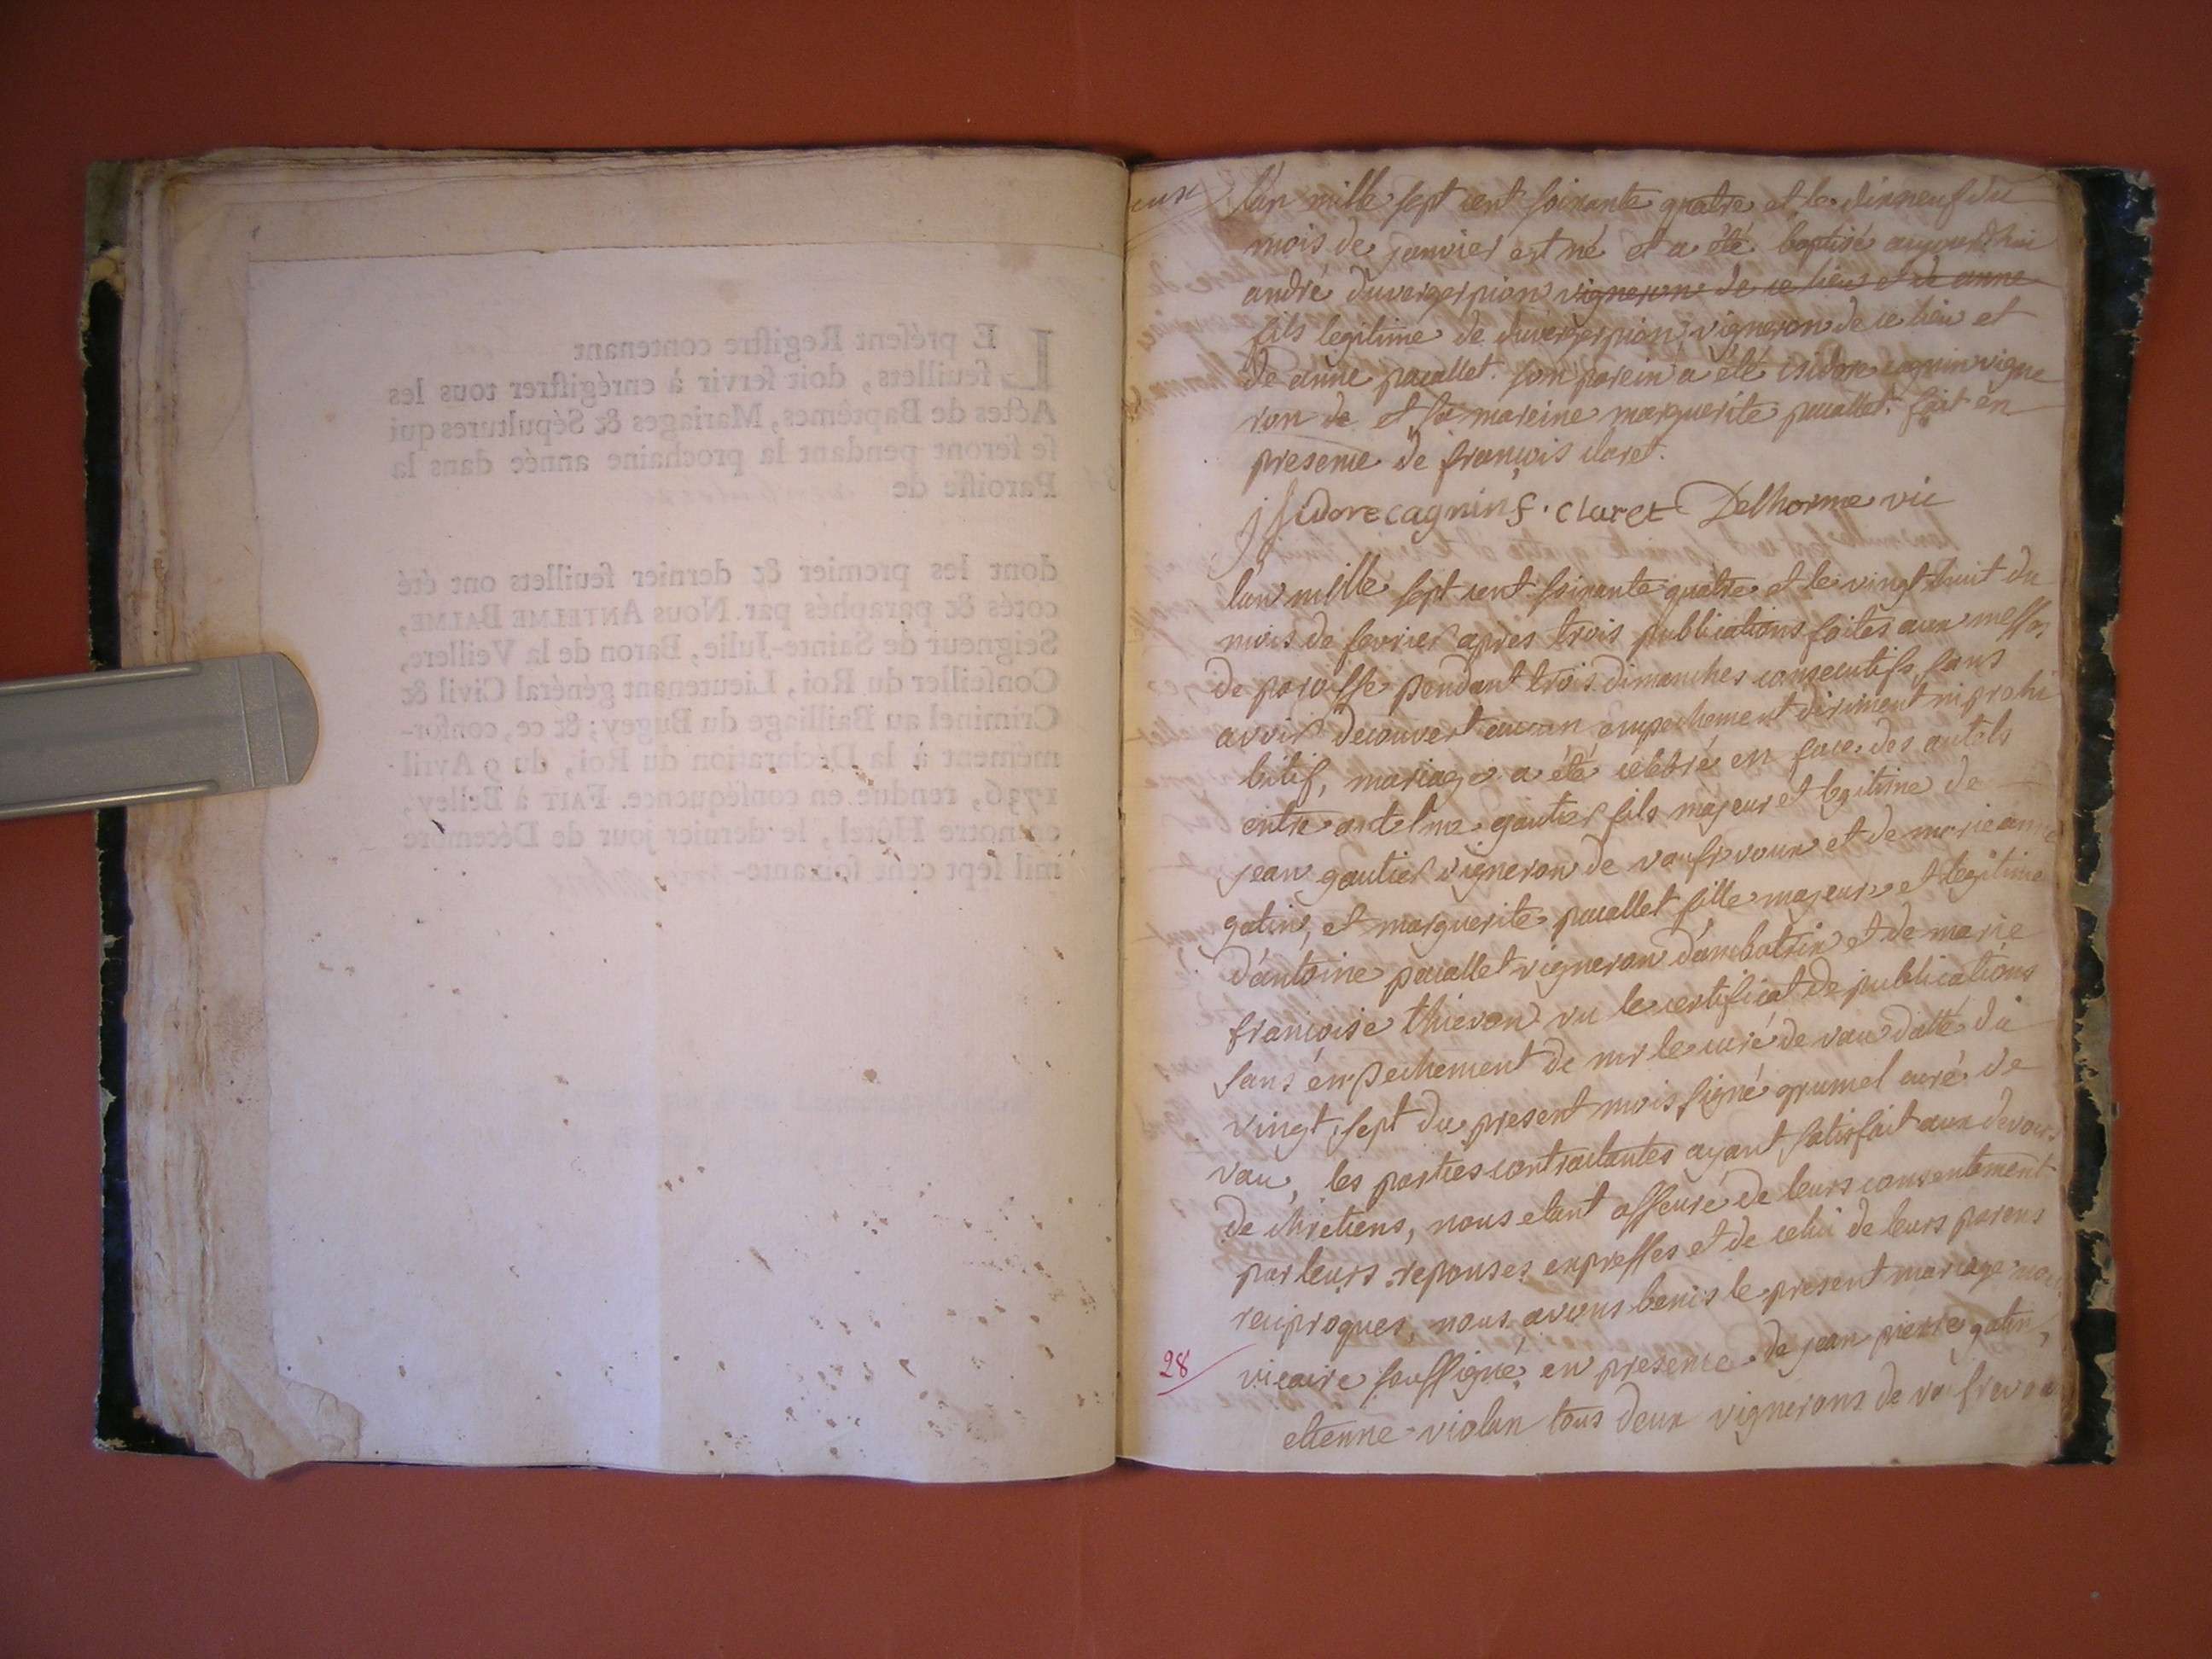 E présent Registre contenant
L feuillets, doit servir à enrégistrer tous les
Actes de Baptêmes, Mariages & Sépultures qui
se feront pendant la prochaine année dans la
Paroisse de
dont les premier & dernier feuillets ont été
cotés & paraphés par Nous ANTELME BALME,
Seigneur de Sainte-Julie, Baron de la Veillere,
Conseiller du Roi, Lieutenant général Civil &
Criminel au Bailliage du Bugey; & ce, confor-
mément à la Déclaration du Roi, du 9 Avril
1736, rendue en conséquence. FAIT à Belley,
en notre Hôtel, le dernier jour de Décembre
mil sept cent soixante-
l'an mille sept cent soixante quatre et le dixneuf du
mois de janvier est né et a été baptisé aujourd'hui
andré duvergerpion vigneron de ce lieu et de anne
fils legitime de duvergerpion vigneron de ce lieu et
de anne pacallet. son parein a été isidore cagnin vigne
ron de et sa mareine marguerite pacallet. fait en
presence de françois claret.
jsidore cagnin f. claret Delhorme vic
l'an mille sept cent soixante quatre et le vingt huit du
mois de fevrier apres trois publications faites aux messes
de paroisse pendant trois dimanches consecutifs sans
avoir decouvert aucun empechement diriment ni prohi
bitif, mariage a été celebré en face des autels
entre antelme gautier fils majeur et legitime de
jean gautier vigneron de vaufrvoux et de marie anne
gatin, et marguerite pacallet fille majeure et legitime
d'antoine pacallet vigneron d'ambutrix et de marie
françoise thievon vu le certificat de publications
sans empechement de mr le curé de vau datté du
vingt sept du present mois signé grumel curé de
vau, les parties contractantes ayant satisfait aux devoirs
de chretiens, nous etant assuré de leurs consentement
par leurs reponses expresses et de celui de leurs parens
reciproques, nous avons benis le present mariage nous
vicaire soussigné, en presence de jean pierre gatin,
28
etienne violan tous deux vignerons de vaufrevou